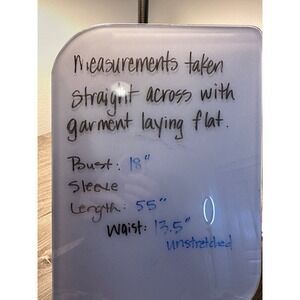 Measurements taken
straight across with
garment laying flat.
Bust: 18"
Sleeve
Length: 55"
Waist: 13.5"
unstretched